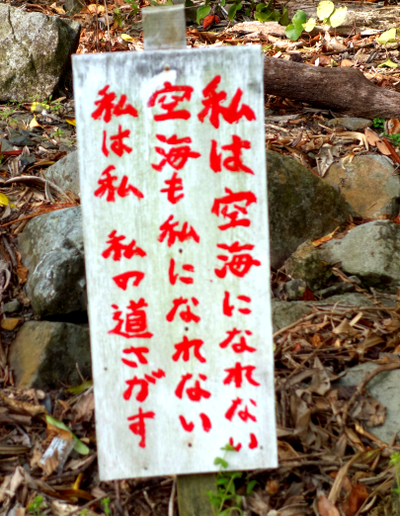 私は空海になれない
空海も私になれない
私は私 私の道さがす